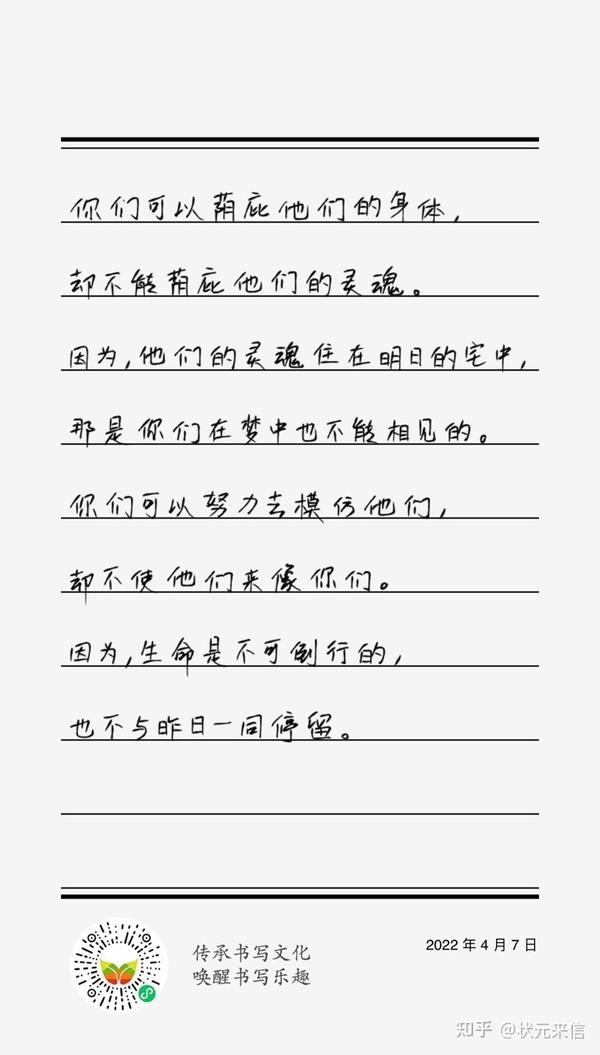 你们可以荫庇他们的身体,
却不能荫庇他们的灵魂。
因为,他们的灵魂住在明日的宅中,
那是你们在梦中也不能相见的。
你们可以努力去模仿他们,
却不使他们来像你们。
因为,生命是不可倒行的,
也不与昨日一同停留。
传承书写文化
唤醒书写乐趣
2022 年 4 月 7 日
知乎 @状元来信